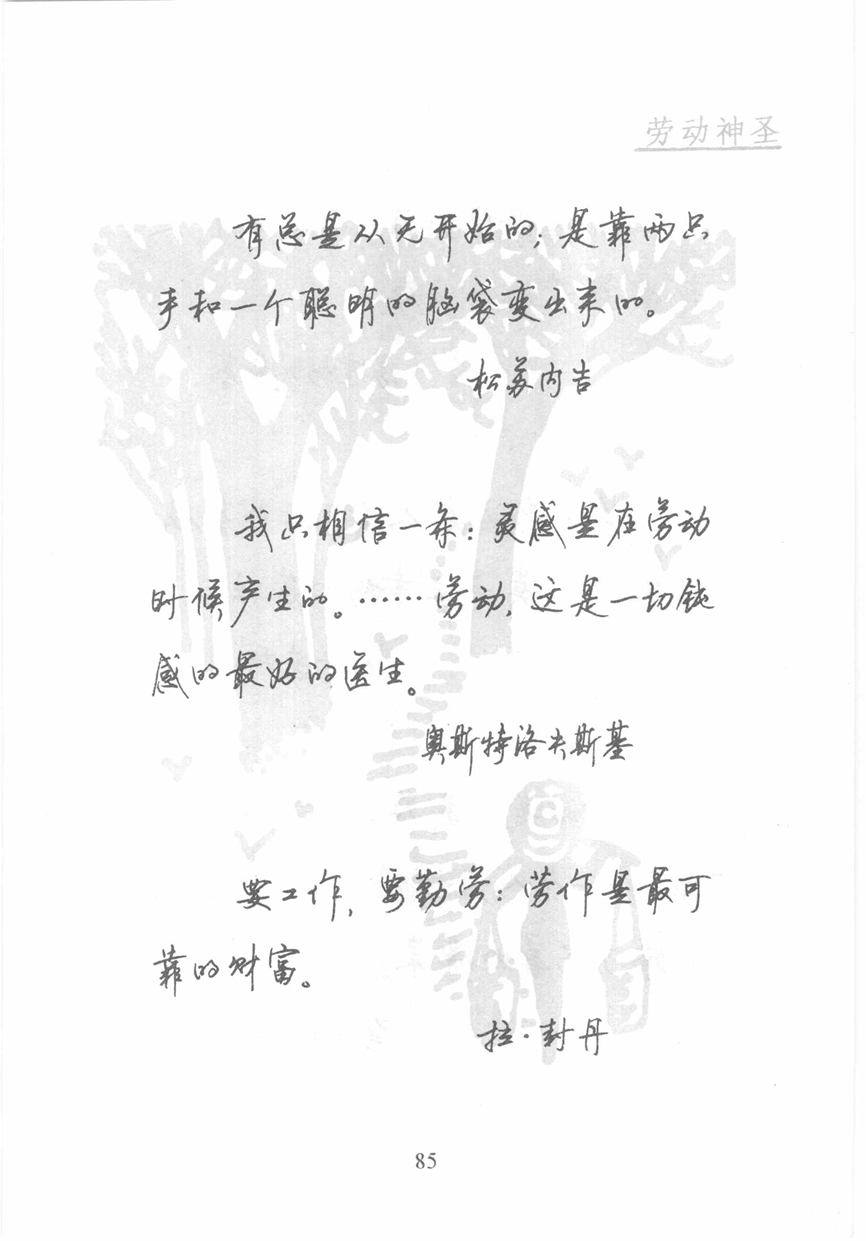 劳动神圣
有总是从无开始的；是靠两只
手和一个聪明的脑袋变出来的。
松苏内吉
我只相信一条：灵感是在劳动
时候产生的。……劳动，这是一切钝
感的最好的医生。
奥斯特洛夫斯基
要工作，要勤劳：劳作是最可
靠的财富。
拉·封丹
85